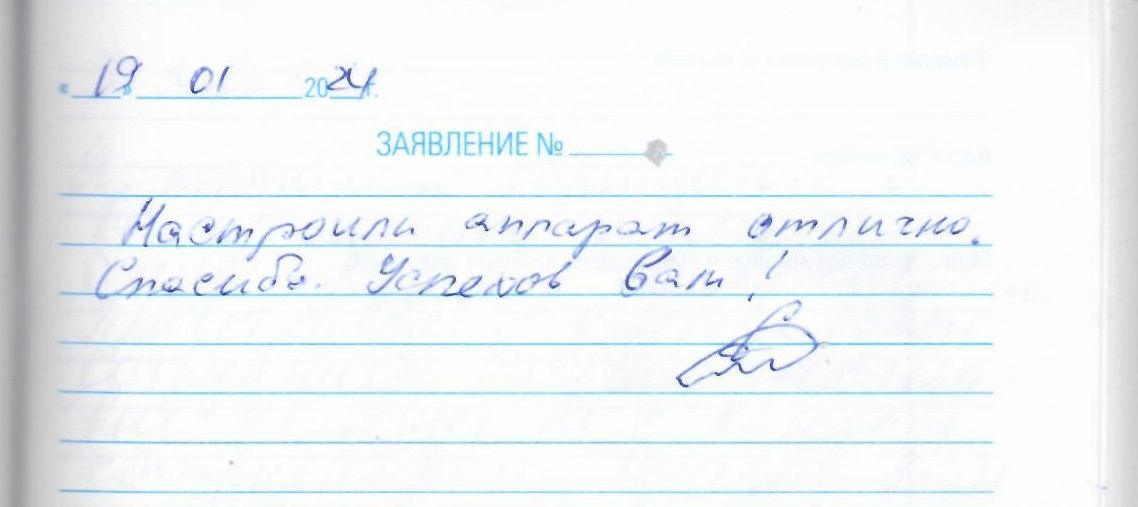 «19» 01 2024г.
ЗАЯВЛЕНИЕ №
Настроили аппарат отлично.
Спасибо. Успехов Вам!